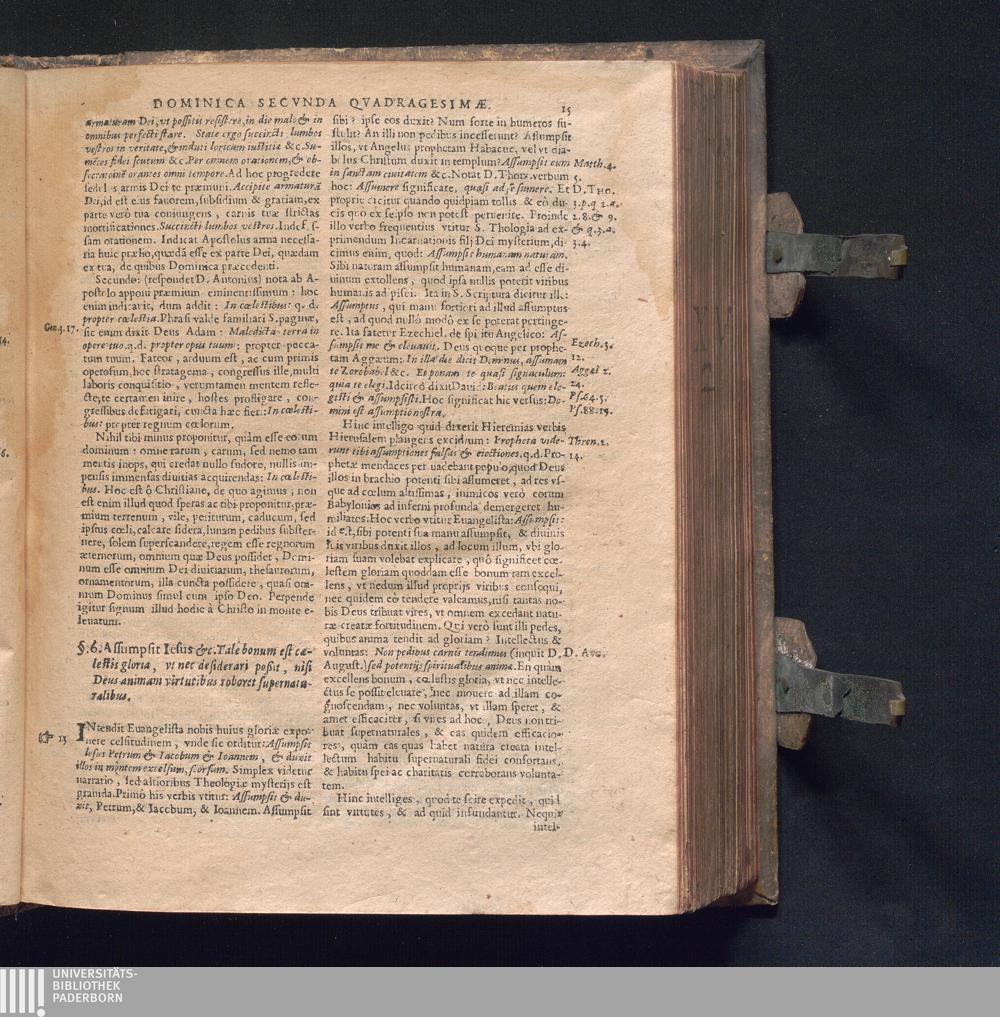 DOMINICA SECVNDA QVADRAGESIMÆ.
15
armaturam Dei, vt possitis resistere, in die malo & in
omnibus perfecti stare. State ergo succincti lumbos
vestros in veritate, & induti loricam iustitiæ &c. Su-
mẽtes fidei scutum &c. Per omnem orationem, & ob-
secrationẽ orantes omni tempore. Ad hoc progredere
sed his armis Dei te præmuni. Accipite armaturã
Dei, id est eius fauorem, subsidium & gratiam, ex
parte verò tua coniungens, carnis tuæ strictas
mortificationes. Succincti lumbos vestros. Indefes-
sam orationem. Indicat Apostolus arma necessa-
ria huic prælio, quædã esse ex parte Dei, quædam
ex tua, de quibus Dominica præcedenti.
Secundo: (respondet D. Antonius) nota ab A-
postolo apponi præmium eminentissimum: hoc
enim indicauit, dum addit: In cœlestibus: q. d.
propter cœlestia. Phrasi valde familiari S. paginæ,
sic enim dixit Deus Adam: Maledicta terra in
opere tuo. q.d. propter opus tuum: propter pecca-
tum tuum. Fateor, arduum est, ac cum primis
operosum, hoc stratagema, congressus ille, multi
laboris conquisitio, verumtamen mentem refle-
cte, te certamen inire, hostes profligare, con-
gressibus defatigari, cuncta hæc fieri: In cœlesti-
bus: propter regnum cœlorum.
Nihil tibi minus proponitur, quàm esse eorum
dominum: omne rarum, carum, sed nemo tam
mentis inops, qui credat nullo sudore, nullis im-
pensis immensas diuitias acquirendas: In cœlesti-
bus. Hoc est ô Christiane, de quo agimus; non
est enim illud quod speras ac tibi proponitur, præ-
mium terrenum, vile, periturum, caducum, sed
ipsius cœli, calcare sidera, lunam pedibus subster-
nere, solem superscandere, regem esse regnorum
æternorum, omnium quæ Deus possidet, Domi-
num esse omnium Dei diuitiarum, thesaurorum,
ornamentorum, illa cuncta possidere, quasi om-
nium Dominus simul cum ipso Deo. Perpende
igitur signum illud hodie à Christo in monte e-
leuatum.
§. 6. Assumpsit Iesus &c. Tale bonum est cæ-
lestis gloria, vt nec desiderari possit, nisi
Deus animam virtutibus roboret superna-
ralibus.
13
INtendit Euangelista nobis huius gloriæ expo-
nere celsitudinem, vnde sic orditur: Assumpsit
Iesus Petrum & Iacobum & Ioannem, & duxit
illos in montem excelsum, seorsum. Simplex videtur
narratio, sed altioribus Theologiæ mysterijs est
grauida. Primò his verbis vtitur: Assumpsit & du-
xit, Petrum, & Iacobum, & Ioannem. Assumpsit
Gen. 3. 17.
sibi? ipse eos duxit? Num forte in humeros su-
stulit? An illi non pedibus incesserunt? Assumpsit
illos, vt Angelus prophetam Habacuc, vel vt dia-
bolus Christum duxit in templum? Assumpsit eum
in sanctam ciuitatem &c. Notat D. Thom. verbum
hoc: Assumere significare, quasi ad se sumere. Et
proprie dicitur quando quidpiam tollis & eò du-
cis quo ex seipso non potest peruenire. Proinde
illo verbo frequentius vtitur S. Thologia ad ex-
primendum Incarnationis filij Dei mysterium, di-
cimus enim, quod: Assumpsit humanam naturam.
Sibi naturam assumpsit humanam, eam ad esse di-
uinum extollens, quod ipsa nullis poterit viribus
humanis ad pisci. Ita in S. Scriptura dicitur ille:
Assumptus, qui manu fortiori ad illud assumptus
est, ad quod nullò modò ex se poterat pertinge-
re. Ita fatetur Ezechiel. de spiritu Angelico: As-
sumpsit me & eleuauit. Deus quoque per prophe-
tam Aggæum: In illa die dicit Dominus, assumam
te Zorobabel &c. Et ponam te quasi signaculum:
quia te elegi. Idcircò dixit Dauid: Beatus quem ele-
gisti & assumpsisti. Hoc significat hic versus: Do-
mini est assumptio nostra.
Hinc intelligo quid dixerit Hieremias verbis
Hierusalem plangens excidium: Propheta vide-
runt tibi assumptiones falsas & eiectiones. q.d. Pro-
phetæ mendaces persuadebant populo, quod Deus
illos in brachio potenti sibi assumeret, ad res vs-
que ad cœlum altissimas, inimicos verò eorum
Babylonios ad inferni profunda demergeret hu-
miliates. Hoc verbo vtitur Euangelista: Assumpsit:
id est, sibi potenti sua manu assumpsit, & diuinis
suis viribus duxit illos, ad locum illum, vbi glo-
riam suam volebat explicare, quò significet cœ-
lestem gloriam quoddam esse bonum tam excel-
lens, vt nedum illud proprijs viribus consequi,
nec quidem eò tendere valeamus, nisi tantas no-
bis Deus tribuat vires, vt omnem excedant natu-
ræ creatæ fortitudinem. Qui verò sunt illi pedes,
quibus anima tendit ad gloriam? Intellectus &
voluntas: Non pedibus carnis tendimus (inquit D.
August.) sed potentijs spiritualibus animæ. En quàm
excellens bonum, cœlestis gloria, vt nec intelle-
ctus se possit eleuare, nec mouere ad illam co-
gnoscendam, nec voluntas, vt illam speret, &
amet efficaciter, si vires ad hoc, Deus non tri-
buat supernaturales, & eas quidem efficacio-
res, quàm eas quas habet natura creata intel-
lectum habitu supernaturali fidei confortans,
& habitu spei ac charitatis corroborans volunta-
tem.
Hinc intelliges, quod te scire expedit, quid
sint virtutes, & ad quid infundantur. Nequit
intel-
Matth. 4.
5.
D. Tho.
3. p. q. 2. a.
2. 8. & 9.
& q. 3. a.
3. 4.
Ezech. 3.
12.
Aggæi 2.
24.
Ps. 64. 5.
Ps. 88. 19.
Thren. 2.
14.
D. Aug.
UNIVERSITÄTS-
BIBLIOTHEK
PADERBORN